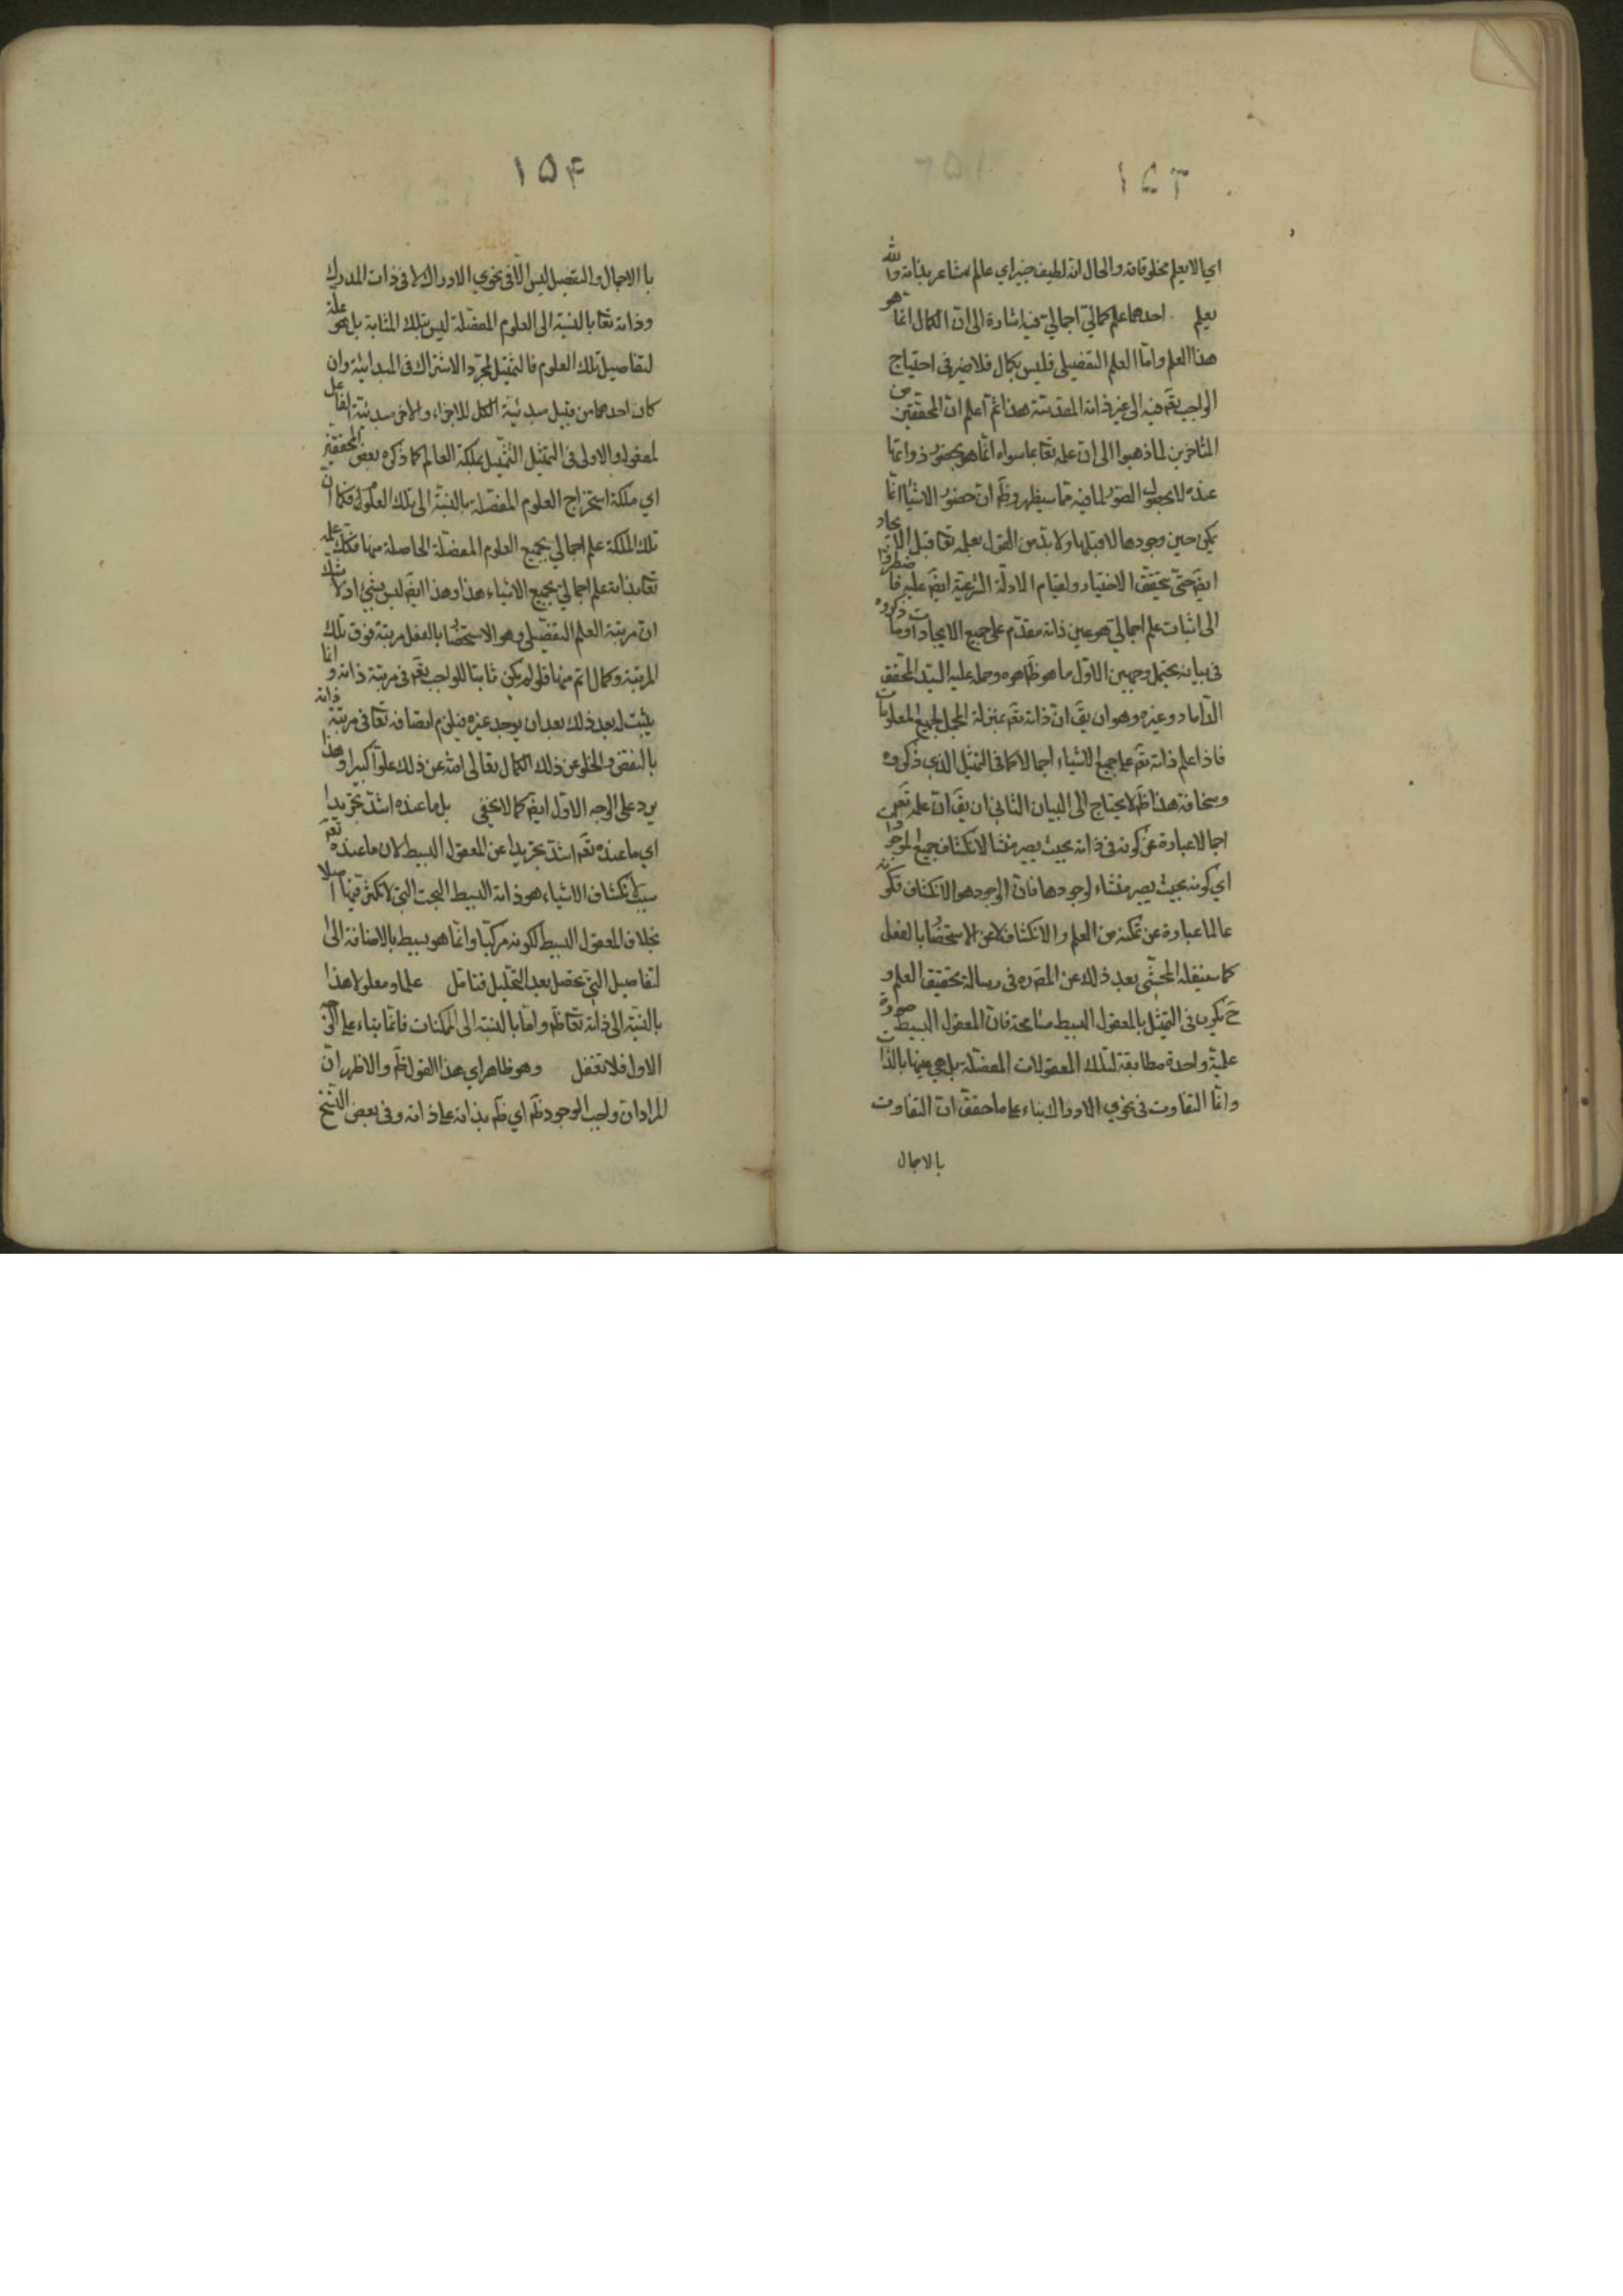 ١٥٣
اي الا يعلم مخلوقاته والحال انه لطيف خبير اي عالم شاعر بذاته والله
يعلم احدهما علم كمالي اجمالي فيه اشارة الى ان الكمال انما هو
هذا العلم واما العلم التفصيلي فليس بكمال فلا ضير في احتياج
الواجب تعم فيه الى غير ذاته المقدسة هذا ثم اعلم ان المحققين من
المتأخرين لما ذهبوا الى ان علمه تعا بما سواه انما هو بحضور ذواتها
عنده لا بحصول الصور لما فيه مما سيظهر وظم ان حضور الاشياء انما
يكون حين وجودها لا قبلها ولا بد من القول بعلمه تعا قبل الايجاد
ايضم حتى يتحقق الاختيار ولقيام الادلة الشرعية ايضم عليه فاضطروا
الى اثبات علم اجمالي هو عين ذاته مقدم على جميع الايجادات وما ذكروه
في بيانه يحتمل وجهين الاول ما هو ظاهره وحمله عليه السيد المحقق
الداماد وغيره وهو ان يقم ان ذاته تعم بمنزلة المجمل لجميع المعلومات
فاذا علم ذاته تعم علم جميع الاشياء اجمالا كما في التمثيل الذي ذكروه
وسخافة هذا ظم لا يحتاج الى البيان الثاني ان يقم ان علمه تعم
اجمالا عبارة عن كونه في ذاته بحيث يصير منشا لانكشاف جميع الموجودات
اي كونه بحيث يصير منشاء لوجودها فان الوجود هو الانكشاف فكونه
عالما عبارة عن تمكنه من العلم والانكشاف لا عن الاستحضار بالفعل
كما سينقله المحشي بعد ذلك عن المصم ره في رسالة تحقيق العلم و
ح يكون في التمثيل بالمعقول البسيط مسامحة فان المعقول البسيط صورة
علمية واحدة مطابقة لتلك المعقولات المفصلة بل هي عينها بالذات
وانما التفاوت في نحوي الادراك بناء على ما حقق ان التفاوت
بالاجمال
١٥۴
با الاجمال والتفصيل ليس الا في نحوي الادراك لا في ذات المدرك
وذاته تعا بالنسبة الى العلوم المفصلة ليس بتلك المثابة بل هو علة
لتفاصيل تلك العلوم فالتمثيل لمجرد الاشتراك في المبدائية وان
كان احدهما من قبيل مبدئية الكل للاجزاء والاخر مبدئية الفاعل
لمفعوله والاولى في التمثيل التمثيل بملكة العالم كما ذكره بعض المحققين
اي ملكة استخراج العلوم المفصلة بالنسبة الى تلك العلوم فكما ان
تلك الملكة علم اجمالي بجميع العلوم المفصلة الحاصلة منها فكك علمه
تعا بذاته علم اجمالي بجميع الاشياء هذا وهذا ايضم ليس بشيء اذ لا شك
ان مرتبة العلم التفصيلي وهو الاستحضار بالفعل مرتبة فوق تلك
المرتبة وكمال اتم منها فلو لم يكن ثابتا للواجب تعم في مرتبة ذاته وانما
يثبت له بعد ذلك بعد ان يوجد غيره فيلزم اتصافه تعا في مرتبة ذاته
بالنقص والخلو عن ذلك الكمال تعالى الله عن ذلك علوا كبيرا وهذا
يرد على الوجه الاول ايضم كما لا يخفى بل ما عنده اشد تجريدا
اي ما عنده تعم اشد تجريدا عن المعقول البسيط لان ما عنده تعم
سبب انكشاف الاشياء هو ذاته البسيط البحت التي لا تكثر فيها اصلا
بخلاف المعقول البسيط لكونه مركبا وانما هو بسيط بالاضافة الى
لتفاصيل التي تحصل بعد التحليل فتامل علما ومعلولا هذا
بالنسبة الى ذاته تعا ظم واما بالنسبة الى الممكنات فانما بناء على الوجه
الاول فلا تغفل وهو ظاهر اي هذا القول ظم والاظهر ان
المراد ان واجب الوجود ظم اي ظم بذاته على ذاته وفي بعض النسخ